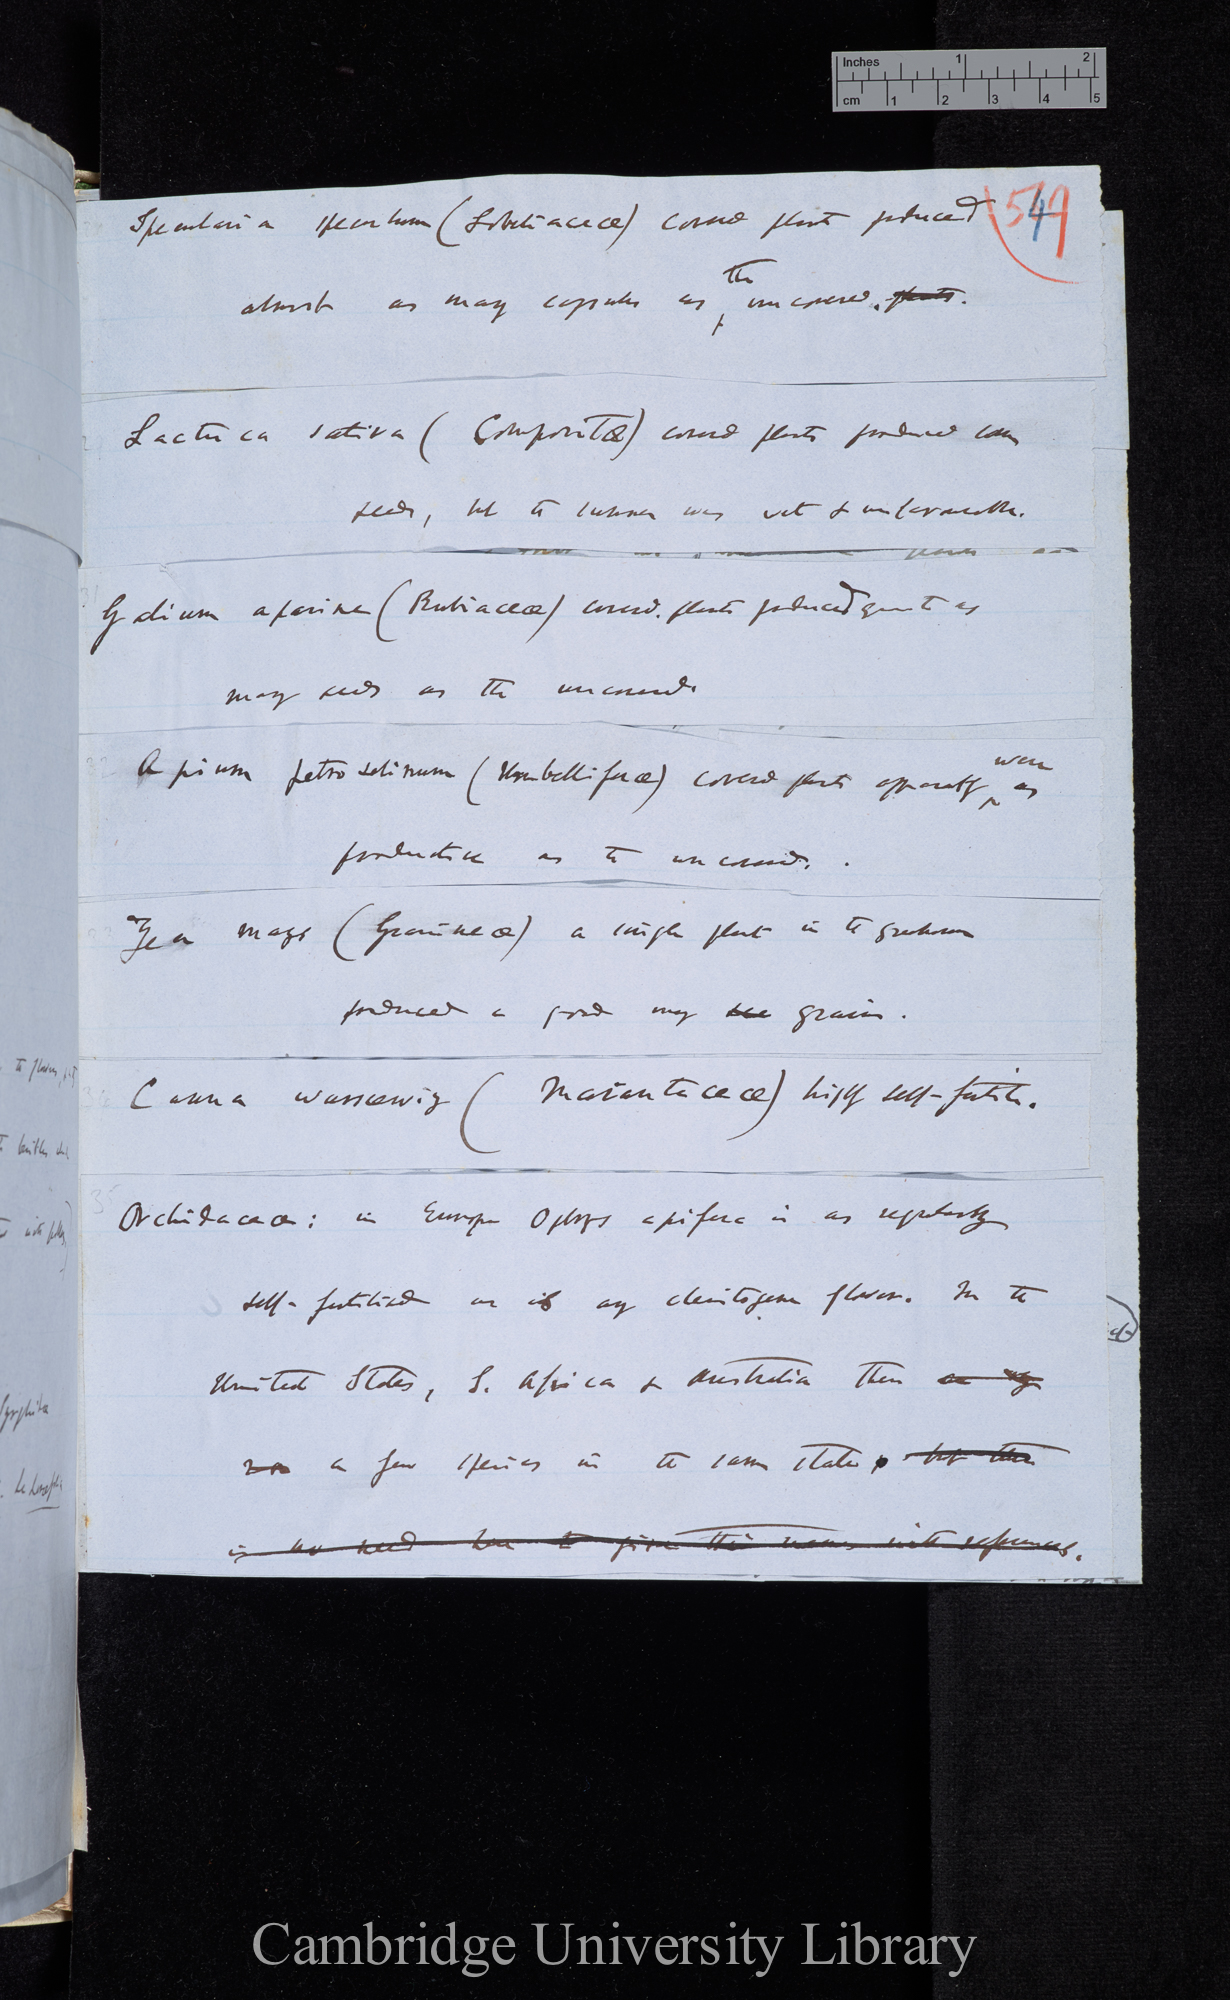 Inches 1 2
cm 1 2 3 4 5
549
Specularia speculum (Lobeliaceæ) covered plants produced
the
almost as many capsules as uncovered. plants.
Lactuca sativa (Compositæ) covered plants produced some
seeds, but the summer was wet & unfavourable.
Galium aparine (Rubiaceæ) covered plants produced quite as
many seeds as the uncovered.
Apium petroselinum (Umbelliferæ) covered plants apparently as
were
productive as the uncovered.
Zea mays (Gramineæ) a single plant in the greenhouse
produced a good many grains.
Canna warscewiczi (Marantaceæ) highly self-fertile.
Orchidaceæ: in Europe Ophrys apifera is as regularly
self-fertilised as is any cleistogene flower. In the
United States, S. Africa & Australia there
are a few species in the same state, but there
is no need here to give their names with references.
Cambridge University Library